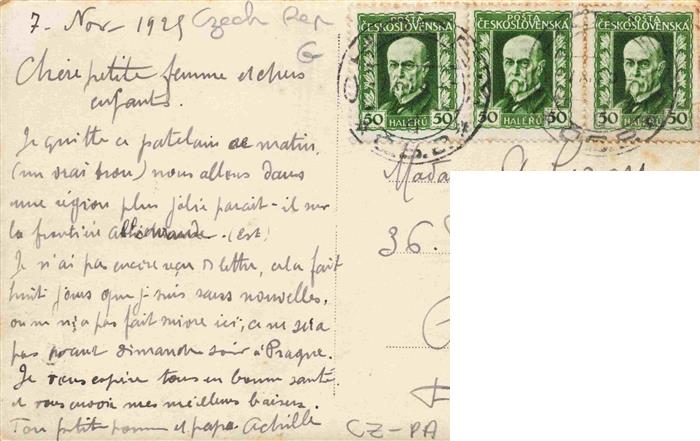 7 - Nov - 1925 Czech Rep
G
Chère petite femme et chers
enfants.
Je quitte ce patelain ce matin,
(un vrai trou) nous allons dans
une région plus jolie parait-il sur
la frontière allemande. (Est)
Je n'ai pas encore reçu de lettre, cela fait
huit jours que je suis sans nouvelles,
on ne m'a pas fait suivre ici, ce ne sera
pas avant dimanche soir à Prague.
Je vous espère tous en bonne santé
et vous envoie mes meilleurs baisers.
Ton petit homme et papa Achille
CZ-PA
POSTA
ČESKOSLOVENSKÁ
50 HALÉŘŮ 50
POSTA
ČESKOSLOVENSKÁ
50 HALÉŘŮ 50
POSTA
ČESKOSLOVENSKÁ
50 HALÉŘŮ 50
Mada
36.